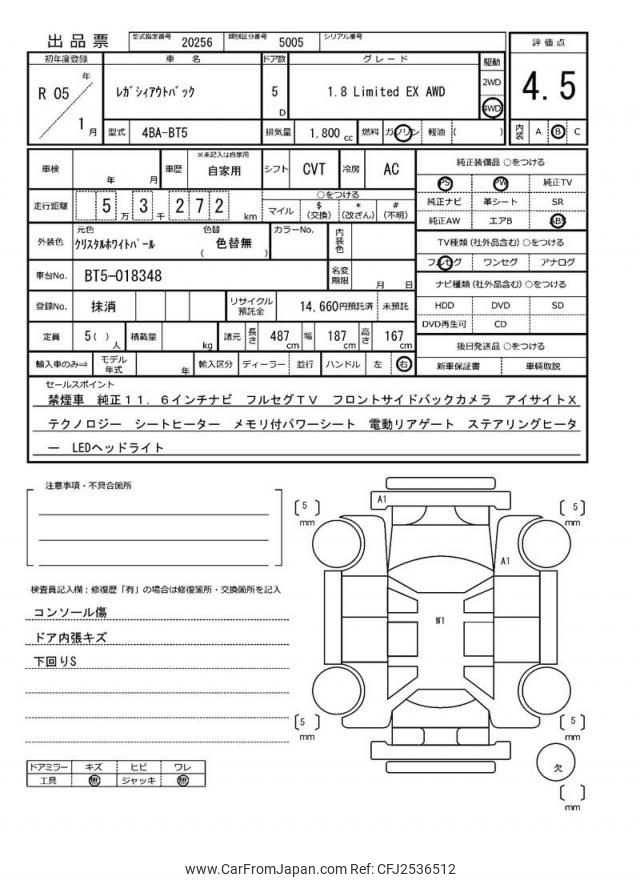 出品票 型式指定番号 20256 類別区分番号 5005 シリアル番号
初年度登録 車名 ドア数 グレード 駆動 評価点
R 05 年 1 月 ﾚｶﾞｼｨｱｳﾄﾊﾞｯｸ 5 D 1.8 Limited EX AWD 2WD 4WD 4.5
型式 4BA-BT5 排気量 1,800 cc 燃料 ガソリン 軽油 ( ) 内装 A B C
車検 年 月 車歴 ※未記入は自家用 自家用 シフト CVT 冷房 AC
走行距離 5 万 3 千 2 7 2 km ○をつける マイル $ (交換) * (改ざん) # (不明)
外装色 元色 ｸﾘｽﾀﾙﾎﾜｲﾄﾊﾟｰﾙ 色替 ( 色替無 ) カラーNo. 内装色
車台No. BT5-018348 名変期限 月 日
登録No. 抹消 リサイクル預託金 14,660円預託済 未預託
定員 5( ) 人 積載量 kg 諸元 長さ 487 cm 幅 187 cm 高さ 167 cm
輸入車のみ⇒ モデル年式 年 輸入区分 ディーラー 並行 ハンドル 左 右
純正装備品 ○をつける
PS PW 純正TV
純正ナビ 革シート SR
純正AW エアB ABS
TV種類 (社外品含む) ○をつける
フルセグ ワンセグ アナログ
ナビ種類 (社外品含む) ○をつける
HDD DVD SD
DVD再生可 CD
後日発送品 ○をつける
新車保証書 車輌取説
セールスポイント
禁煙車 純正11.6インチナビ フルセグTV フロントサイドバックカメラ アイサイトX
テクノロジー シートヒーター メモリ付パワーシート 電動リアゲート ステアリングヒータ
ー LEDヘッドライト
注意事項・不具合箇所
検査員記入欄：修復歴「有」の場合は修復箇所・交換箇所を記入
コンソール傷
ドア内張キズ
下回りS
ドアミラー キズ ヒビ ワレ
工具 無 ジャッキ 無
A1
[ 5 ] mm
[ 5 ] mm
A1
W1
[ 5 ] mm
[ 5 ] mm
欠
[ ] mm
www.CarFromJapan.com Ref: CFJ2536512